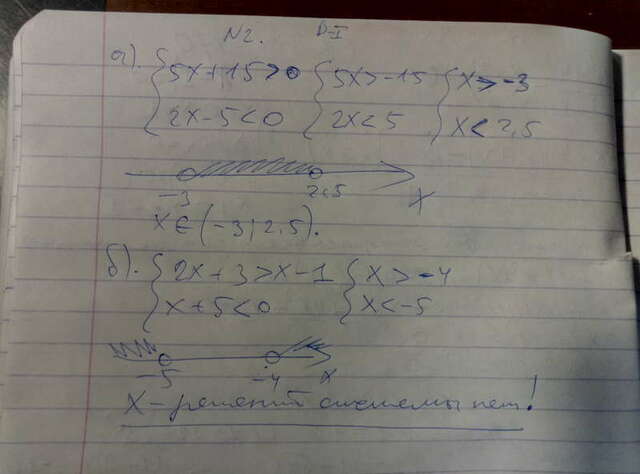 N2. В-I
а). { 5x+15>0 { 5x>-15 { x>-3
2x-5<0 2x<5 x<2,5
-3 2,5 x
x∈(-3;2,5).
б). { 2x+3>x-1 { x>-4
x+5<0 x<-5
-5 -4 x
X-решений системы нет!